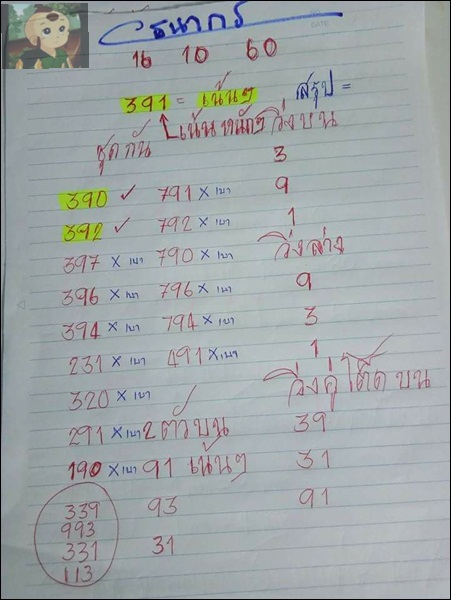 ธนากร
DATE
16 10 60
391 = เน้นๆ สรุป =
เน้นหนักๆ วิ่งบน
ชุดกัน 3
390 ✓ 791 X เบา 9
392 ✓ 792 X เบา 1
397 X เบา 790 X เบา วิ่งล่าง
396 X เบา 796 X เบา 9
394 X เบา 794 X เบา 3
231 X เบา 491 X เบา 1
320 X เบา วิ่งคู่โต๊ดบน
291 X เบา 2 ตัวบน 39
190 X เบา 91 เน้นๆ 31
339 93 91
993
331 31
113